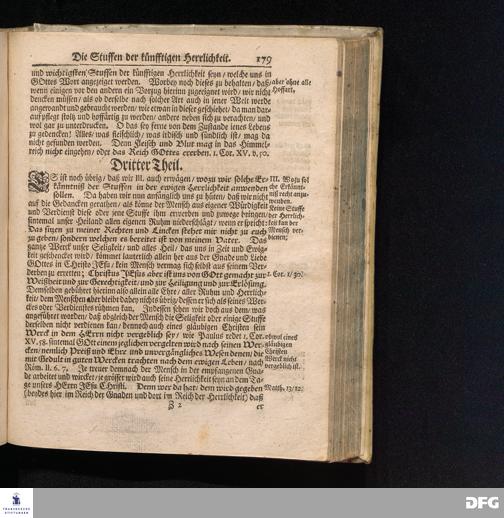 Die Stuffen der künfftigen Herrlichkeit. 179
und wichtigsten Stuffen der künfftigen Herrlichkeit seyn/ welche uns in
GOttes Wort angezeiget werden. Worbey noch dieses zu behalten/ daß/
wenn einigen vor den andern ein Vorzug hierinn zugeeignet wird/ wir nicht
dencken müssen/ als ob derselbe nach solcher Art auch in jener Welt werde
angewandt und gebraucht werden/ wie etwan in dieser geschiehet/ da man dar-
auf pflegt stoltz und hoffärtig zu werden/ andere neben sich zu verachten/ und
wol gar zu unterdrucken. O das sey ferne von dem Zustande jenes Lebens
zu gedencken! Alles/ was fleischlich/ was irdisch und sündlich ist/ mag da
nicht gefunden werden. Denn Fleisch und Blut mag in das Himmel-
reich nicht eingehen/ oder das Reich GOttes ererben. 1. Cor. XV. v. 50.
aber ohne alle
Hoffart,
Dritter Theil.
ES ist noch übrig/ daß wir III. auch erwägen/ wozu wir solche Er-
känntniß der Stuffen in der ewigen Herrlichkeit anwenden
sollen. Da haben wir nun anfänglich uns zu hüten/ daß wir nicht
auf die Gedancken gerathen/ als könne der Mensch aus eigener Würdigkeit
und Verdienst diese oder jene Stuffe ihm erwerben und zuwege bringen/
sintemal unser Heiland allen eigenen Ruhm niederschlägt/ wenn er spricht:
Das sitzen zu meiner Rechten und Lincken stehet mir nicht zu euch
zu geben/ sondern welchen es bereitet ist von meinem Vater. Das
gantze Werk unser Seligkeit/ und alles Heil/ das uns in Zeit und Ewig-
keit geschencket wird/ kömmet lauterlich allein her aus der Gnade und Liebe
GOttes in Christo JEsu/ kein Mensch vermag sich selbst aus seinem Ver-
derben zu erretten; Christus JEsus aber ist uns von GOtt gemacht zur
Weißheit und zur Gerechtigkeit/ und zur Heiligung und zur Erlösung.
Demselben gebühret hierinn also allein alle Ehre/ aller Ruhm und Herrlich-
keit/ dem Menschen aber bleibt dabey nichts übrig/ dessen er sich als seines Wer-
ckes oder Verdienstes rühmen kan. Indessen sehen wir doch aus dem/ was
angeführet worden/ daß obgleich der Mensch die Seligkeit oder einige Stuffe
derselben nicht verdienen kan/ dennoch auch eines gläubigen Christen sein
Werck in dem HErrn nicht vergeblich sey/ wie Paulus redet 1. Cor.
XV, 58. sintemal GOtt einem jeglichen vergelten wird nach seinen Wer-
cken/ nemlich Preiß und Ehre und unvergängliches Wesen denen/ die
mit Gedult in guten Wercken trachten nach dem ewigen Leben/ nach
Röm. II. 6. 7. Je treuer demnach der Mensch in der empfangenen Gna-
de arbeitet und wircket/ je grösser wird auch seine Herrlichkeit seyn an dem Ta-
ge unsers HErrn JEsu Christi. Denn wer da hat/ dem wird gegeben
(beydes hier im Reich der Gnaden und dort im Reich der Herrlichkeit) daß
III. Wozu sol
che Erkännt-
niß recht anzu-
wenden.
Keine Stuffe
der Herrlich-
keit kan der
Mensch ver-
dienen;
1. Cor. 1/30.
obwol eines
gläubigen
Christen
Werck nicht
vergeblich ist.
Matth. 13/12.
Z 2
er
FRANCKESCHE
STIFTUNGEN
DFG